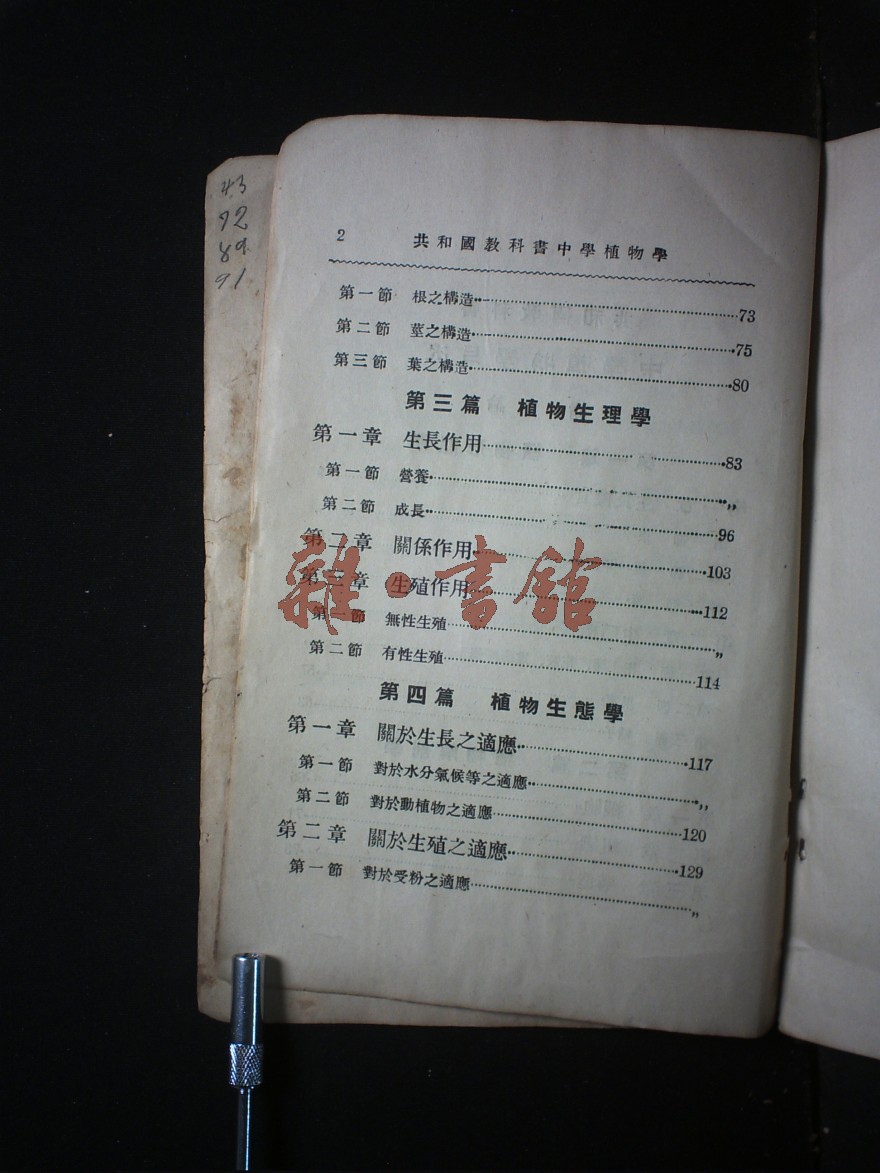 43
92
89
91
2 共和國教科書中學植物學
第一節 根之構造 73
第二節 莖之構造 75
第三節 葉之構造 80
第三篇 植物生理學
第一章 生長作用 83
第一節 營養 „
第二節 成長 96
第二章 關係作用 103
第三章 生殖作用 112
第一節 無性生殖 „
第二節 有性生殖 114
第四篇 植物生態學
第一章 關於生長之適應 117
第一節 對於水分氣候等之適應 „
第二節 對於動植物之適應 120
第二章 關於生殖之適應 129
第一節 對於受粉之適應 „
雜·書館